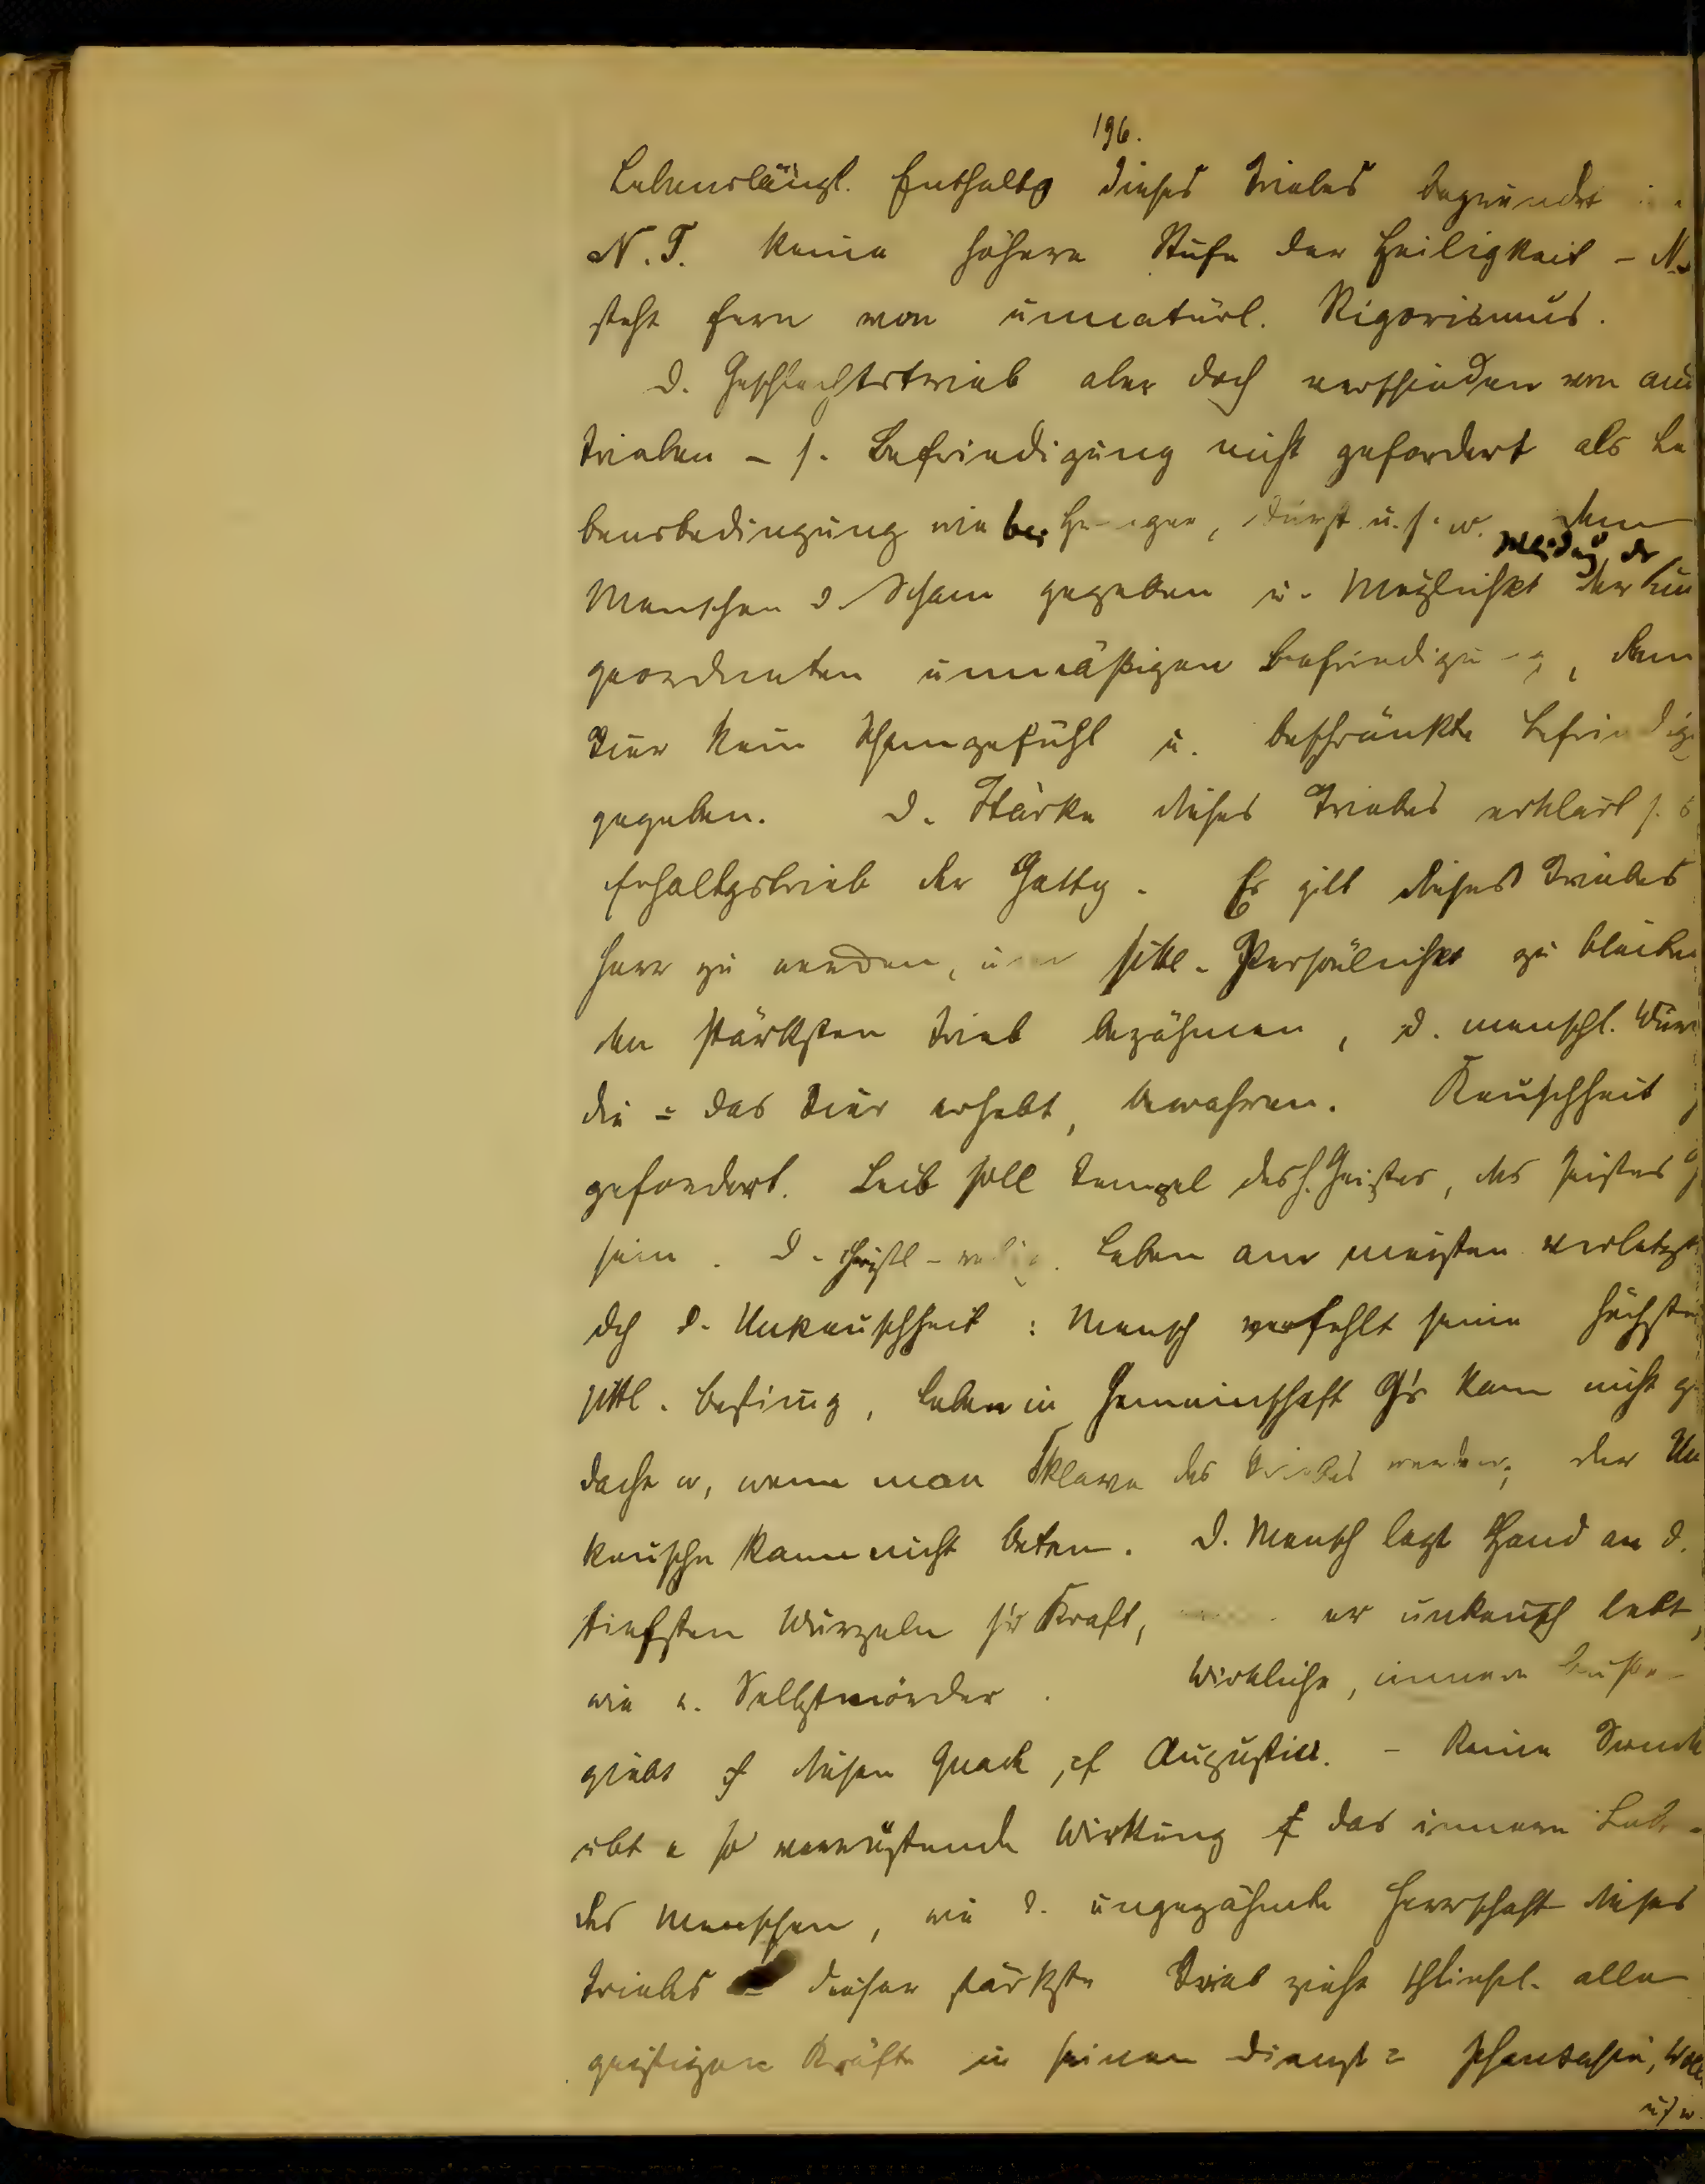 196.
Lebenslängl. Enthaltg dieses Triebes begründet
N. T. keine höhere Stufe der Heiligkeit - N.
steht fern von unnatürl. Rigorismus.
D. Geschlechtstrieb aber doch verschieden von an
Trieben - s. Befriedigung nicht gefordert als Le
bensbedingung wie bei Hunger, Durst u.s.w. dem
Meidung der
Menschen d. Scham gegeben u. Möglichkt der un
geordneten unmäßigen Befriedigung, dem
Tier kein Schamgefühl u. beschränkte Befriedig
gegeben. D. Stärke dieses Triebes erklärt s.
Erhaltgstrieb der Gattg. Es gilt dieses Triebes
Herr zu werden, um sittl. Persönlichkt zu bleiben
den stärksten Trieb bezähmen, d. menschl. Wür
die = das Tier erhebt, bewahren. Keuschheit
gefordert. Leib soll Tempel des h. Geistes, des Geistes G
sein. D. christl-relig. Leben am meisten verletzt
dch d. Unkeuschheit: Mensch verfehlt seine höchste
sittl. Bestimg, Leben in Gemeinschaft G's kann nicht ge
dacht w, wenn man Sklave des Triebes werden; der Un
keusche kann nicht beten. D. Mensch legt Hand an d.
tiefsten Wurzeln sr Kraft, er unkeusch lebt,
wie e. Selbstmörder. Wirkliche, innere Buße
giebt dieser Qual, cf Augustin. - Keine Sünde
übt e so verwüstende Wirkung das innere Leb
des Menschen, wie d. ungezähmte Herrschaft dieses
Triebes dieser stärkste Trieb zieht schließl. alle
geistigen Kräfte in seinen Dienst = Phantasie, Wille
usw.